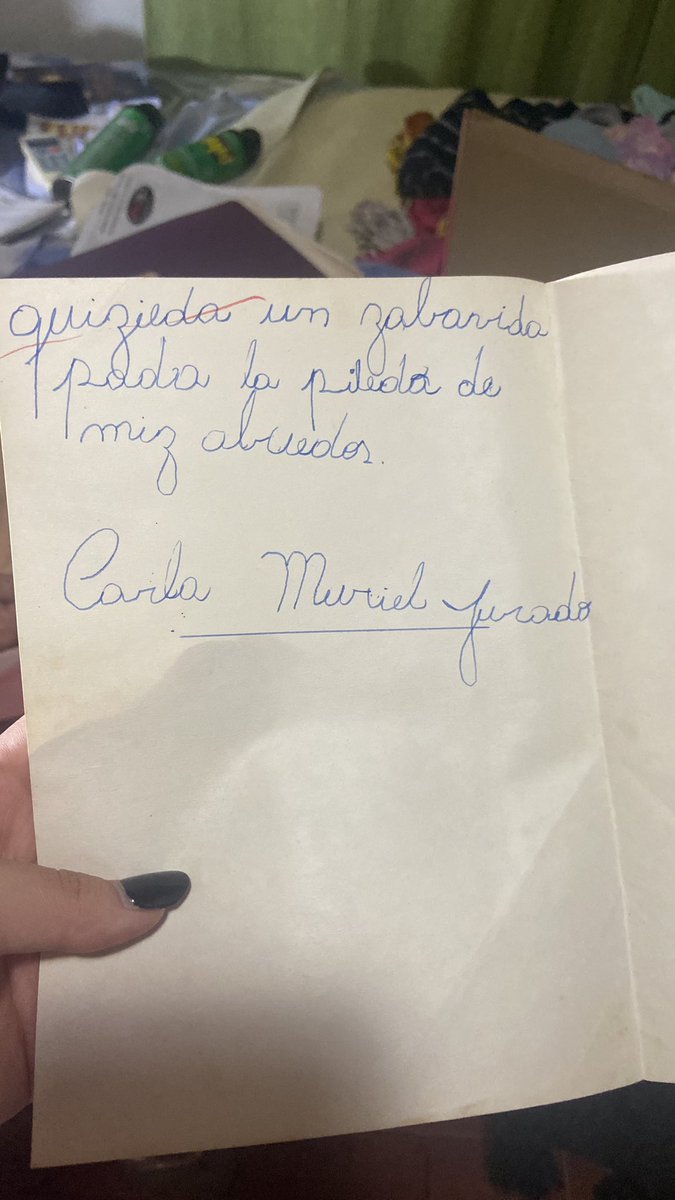 quizieda un zabavida
padra la pileda de
miz abuedos.
Carla Muriel Jurado